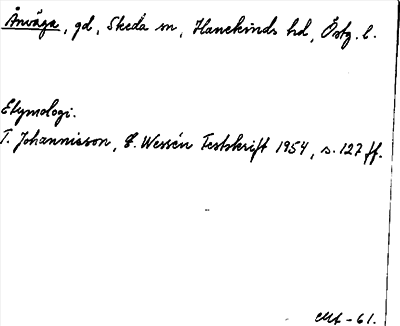 Ånväga, gd, Skeda sn, Hanekinds hd, Östg. l.
Etymologi.
T. Johannisson, E. Wessén Festskrift 1954, s. 127 ff.
-61.